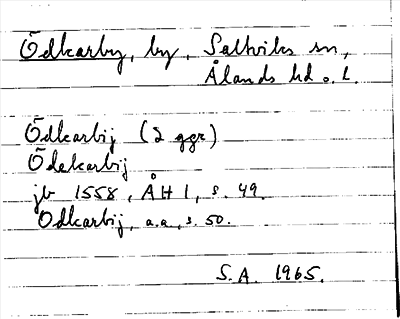 Ödkarby, by, Saltviks sn,
Ålands hd o. l.
Ödkarbij (2 ggr)
Ödekarbij
jb 1558, ÅH 1, s. 49.
Odkarbij, a.a., s. 50.
S.A. 1965.